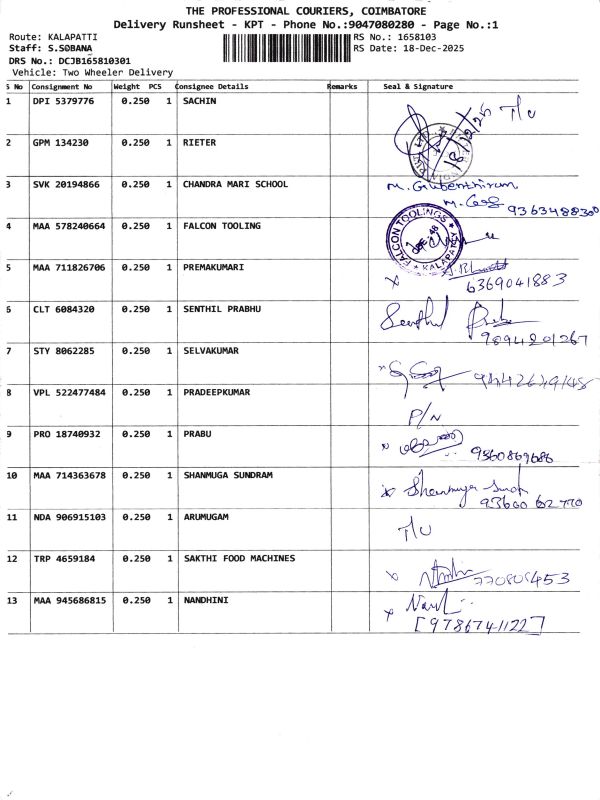 THE PROFESSIONAL COURIERS, COIMBATORE
Delivery Runsheet - KPT - Phone No.:9047080280 - Page No.:1
Route: KALAPATTI
RS No.: 1658103
Staff: S.SOBANA
RS Date: 18-Dec-2025
DRS No.: DCJB165810301
Vehicle: Two Wheeler Delivery
S No Consignment No Weight PCS Consignee Details Remarks Seal & Signature
1 DPI 5379776 0.250 1 SACHIN T/U
18/12/25
2 GPM 134230 0.250 1 RIETER
3 SVK 20194866 0.250 1 CHANDRA MARI SCHOOL
9363488300
4 MAA 578240664 0.250 1 FALCON TOOLING
FALCON TOOLINGS
KALAPATTY
5 MAA 711826706 0.250 1 PREMAKUMARI
6369041883
6 CLT 6084320 0.250 1 SENTHIL PRABHU Senthil
9894201267
7 STY 8062285 0.250 1 SELVAKUMAR
8 VPL 522477484 0.250 1 PRADEEPKUMAR P/N
9 PRO 18740932 0.250 1 PRABU
9360869686
10 MAA 714363678 0.250 1 SHANMUGA SUNDRAM Shanmuga
11 NDA 906915103 0.250 1 ARUMUGAM T/U
12 TRP 4659184 0.250 1 SAKTHI FOOD MACHINES
13 MAA 945686815 0.250 1 NANDHINI
[9786741122]